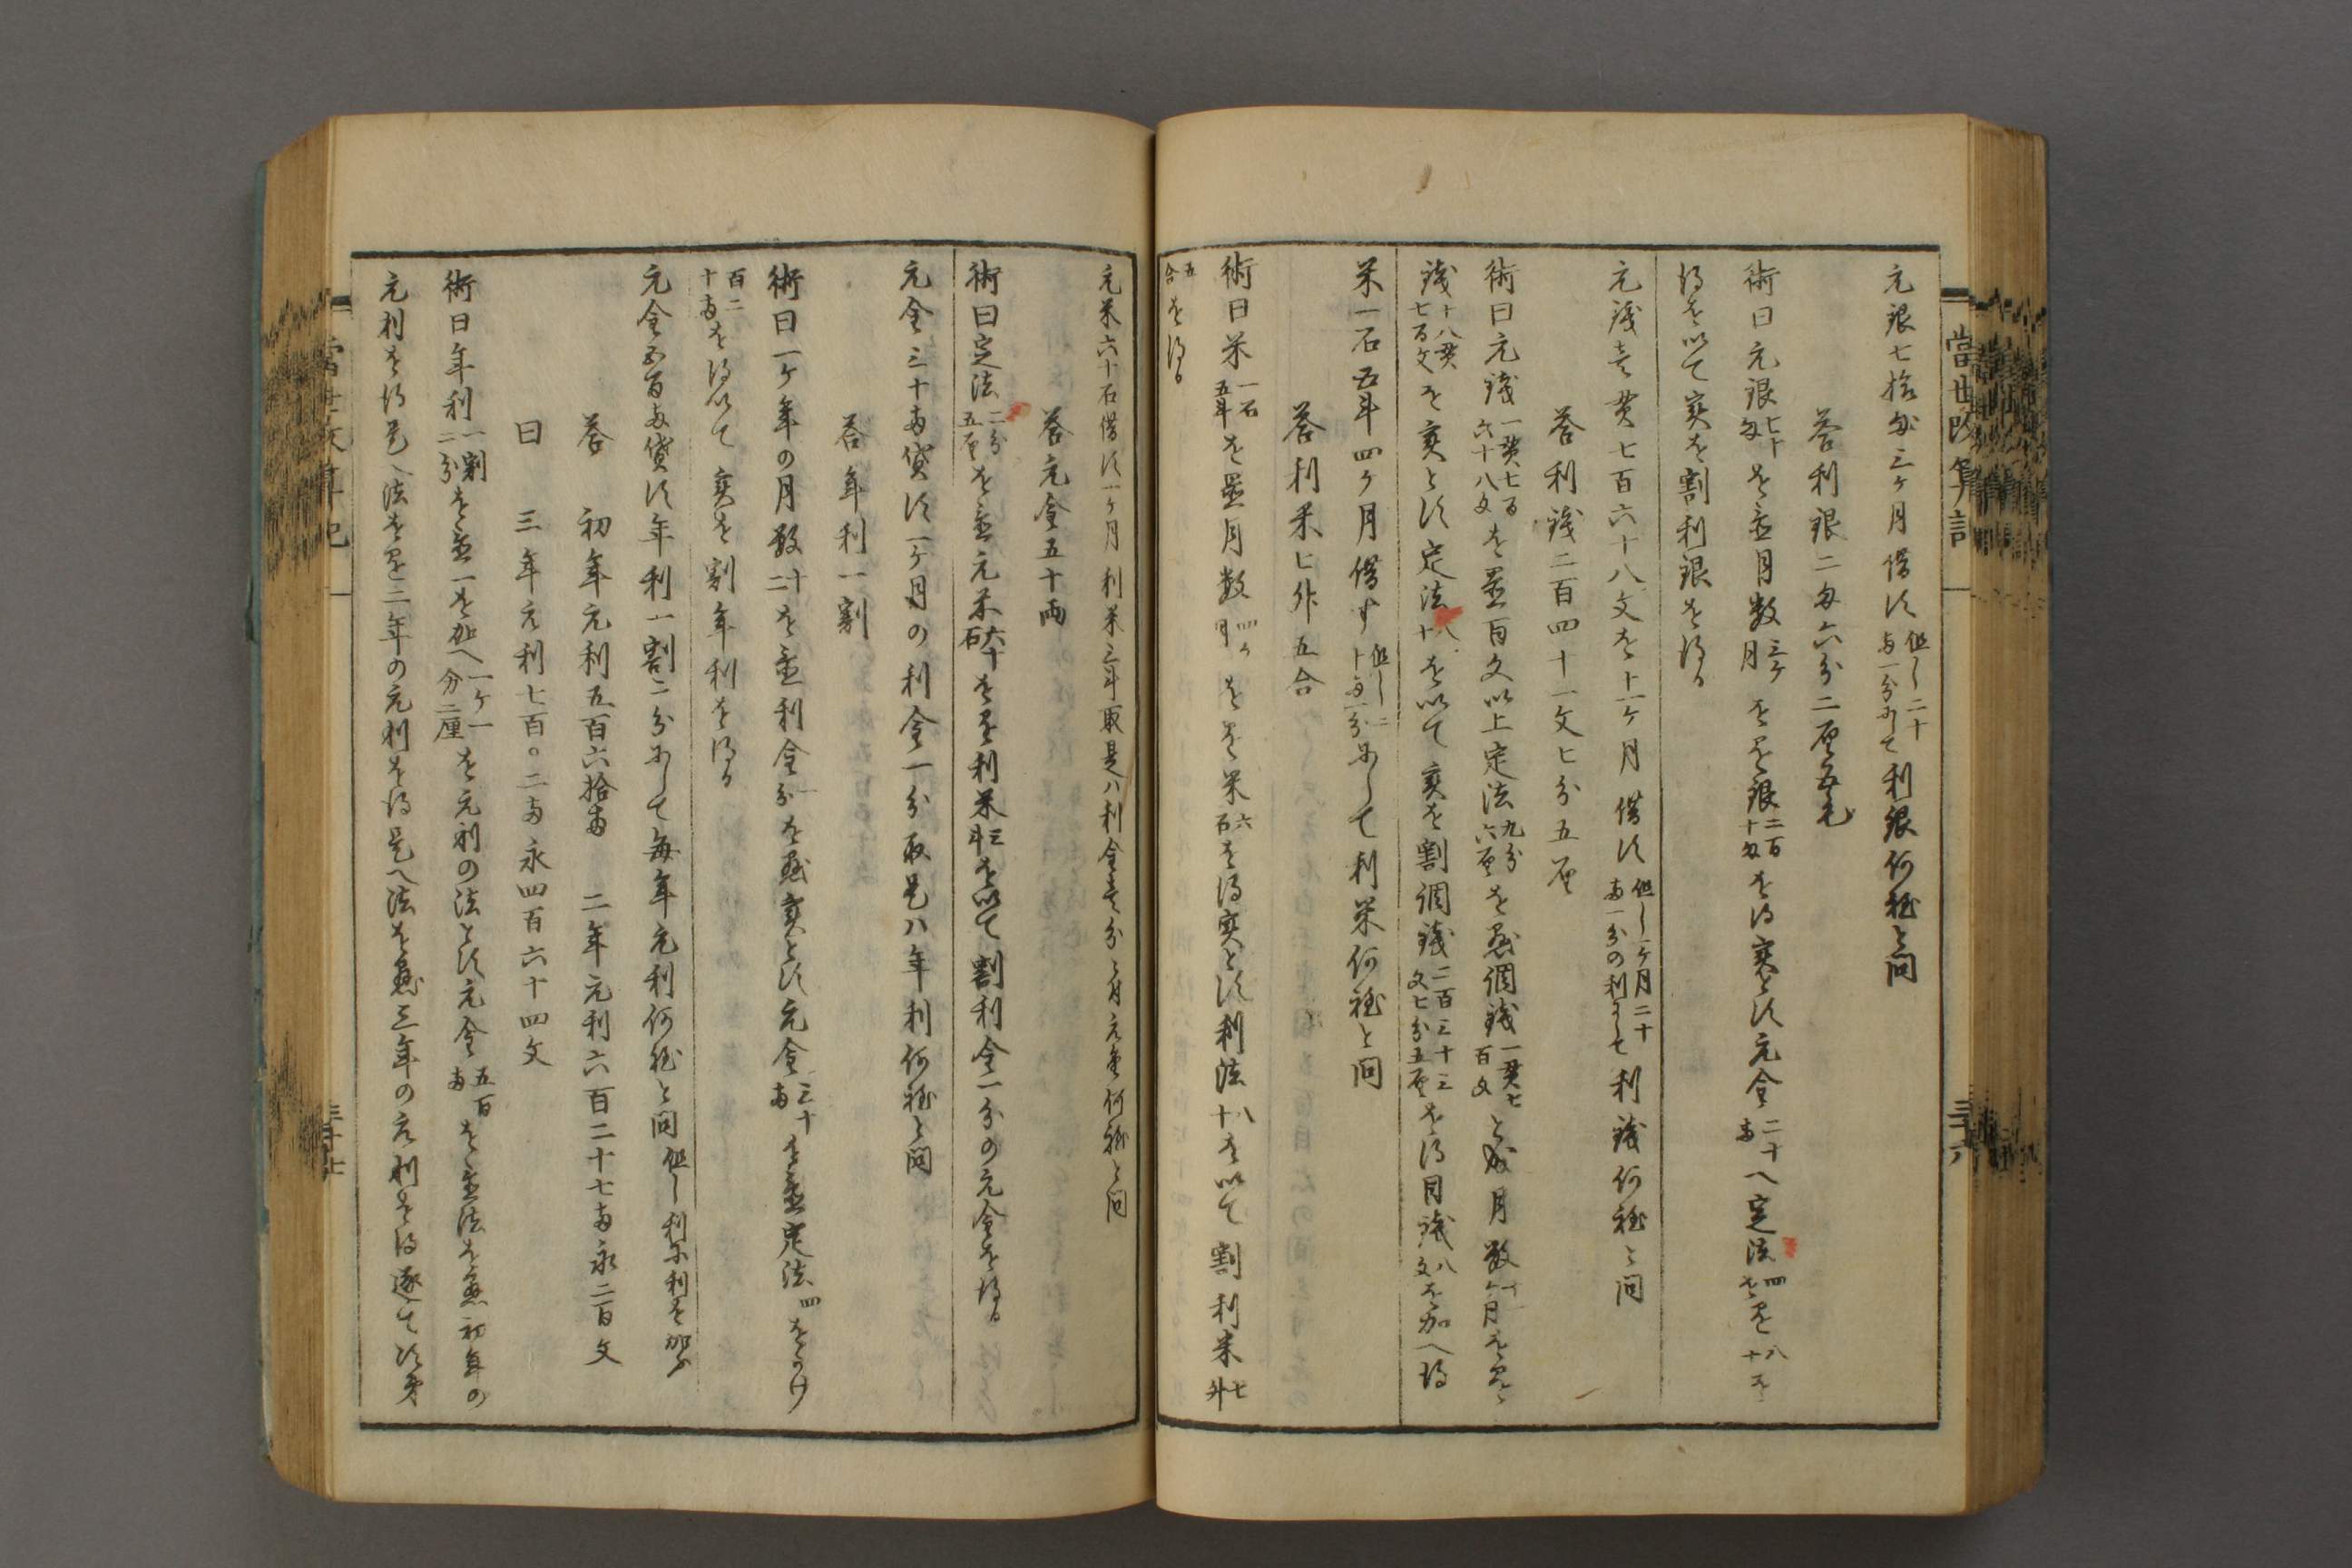 當世改算記 一 三十六
元銀七拾匁三ケ月借ス但し二十両一分ニして利銀何程と問
答利銀二匁六分二厘五毛
術曰元銀七十匁を置月数三ケ月を塁銀二百十匁を得実とス元金二十両へ定法四を塁八十を
得を以て実を割利銀を得る
元銭壱貫七百六十八文を十一ケ月借ス但し一ケ月二十両一分の利にて利銭何程と問
答利銭二百四十一文七分五厘
術曰元銭一貫七百六十八文を置百文以上定法九分六厘を懸調銭一貫七百文と成月数十一ケ月を塁
銭十八貫七百文を実とス定法八十を以て実を割調銭二百三十三文七分五厘を得目銭八文を加へ得
米一石五斗四ケ月借す但し二十両一分ニして利米何程と問
答利米七升五合
術曰米一石五斗を置月数四ケ月を塁米六石を得実とス利法八十を以て割利米七升
五合を得る
元米六十石借ス一ケ月利米三斗取是ハ利金壱分ト月元金何程と問
答元金五十両
術曰定法二分五厘を置元米六十石を塁利米三斗を以て割利金一分の元金を得る
元金三十両貸ス一ケ月の利金一分取是ハ年利何程と問
答年利一割
術曰一ケ年の月数十二を置利金一分を懸実とス元金三十両を置定法四をかけ
百二十両を得以て実を割年利を得る
元金五百両貸ス年利一割二分ニして毎年元利何程と問但し利ニ利を加ふ
答 初年元利五百六拾両 二年元利六百二十七両永二百文
曰 三年元利七百〇二両永四百六十四文
術曰年利一割二分を置一を加へ一ケ一分二厘を元利の法とス元金五百両を置法を懸初年の
元利を得是へ法を塁二年の元利を得是へ法を懸三年の元利を得逐て次第
三十七